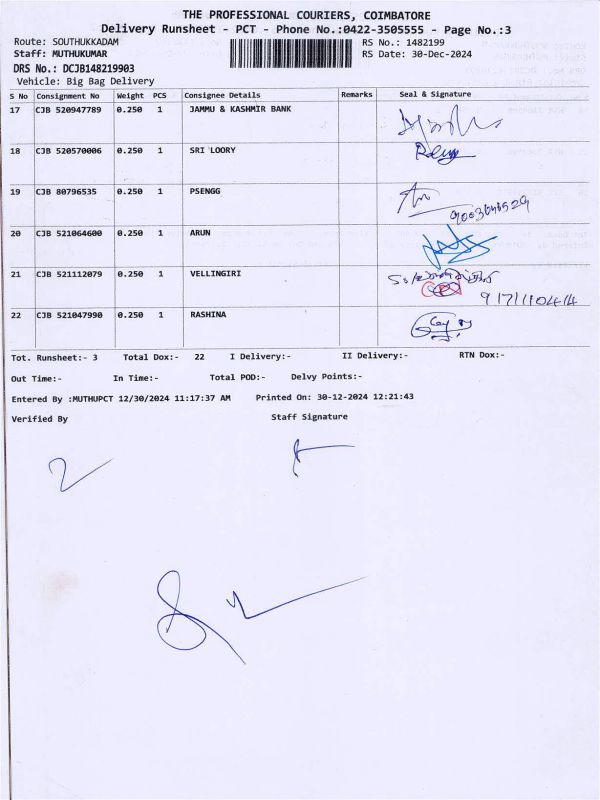 THE PROFESSIONAL COURIERS, COIMBATORE
Delivery Runsheet - PCT - Phone No.:0422-3505555 - Page No.:3
Route: SOUTHUKKADAM RS No.: 1482199
Staff: MUTHUKUMAR RS Date: 30-Dec-2024
DRS No.: DCJB148219903
Vehicle: Big Bag Delivery
S No Consignment No Weight PCS Consignee Details Remarks Seal & Signature
17 CJB 520947789 0.250 1 JAMMU & KASHMIR BANK
18 CJB 520570006 0.250 1 SRI LOORY
19 CJB 80796535 0.250 1 PSENGG
20 CJB 521064600 0.250 1 ARUN
21 CJB 521112079 0.250 1 VELLINGIRI
22 CJB 521047990 0.250 1 RASHINA
Tot. Runsheet:- 3 Total Dox:- 22 I Delivery:- II Delivery:- RTN Dox:-
Out Time:- In Time:- Total POD:- Delvy Points:-
Entered By :MUTHUPCT 12/30/2024 11:17:37 AM Printed On: 30-12-2024 12:21:43
Verified By Staff Signature